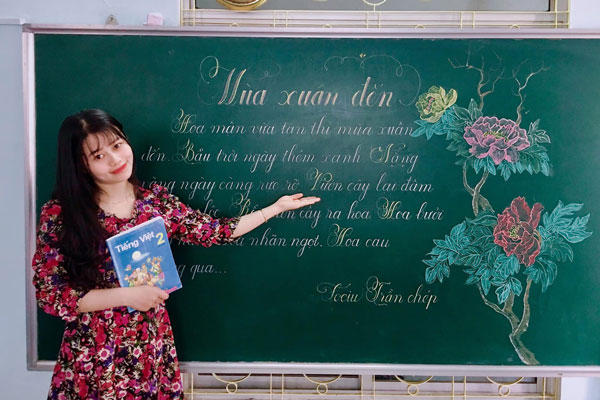 Mùa xuân đến
Hoa mận vừa tàn thì mùa xuân
đến. Bầu trời ngày thêm xanh. Nắng
vàng ngày càng rực rỡ. Vườn cây lại đâm
lộc. Rồi vườn cây ra hoa. Hoa bưởi
nhãn ngọt. Hoa cau
qua...
Trần chép
Tiếng Việt 2